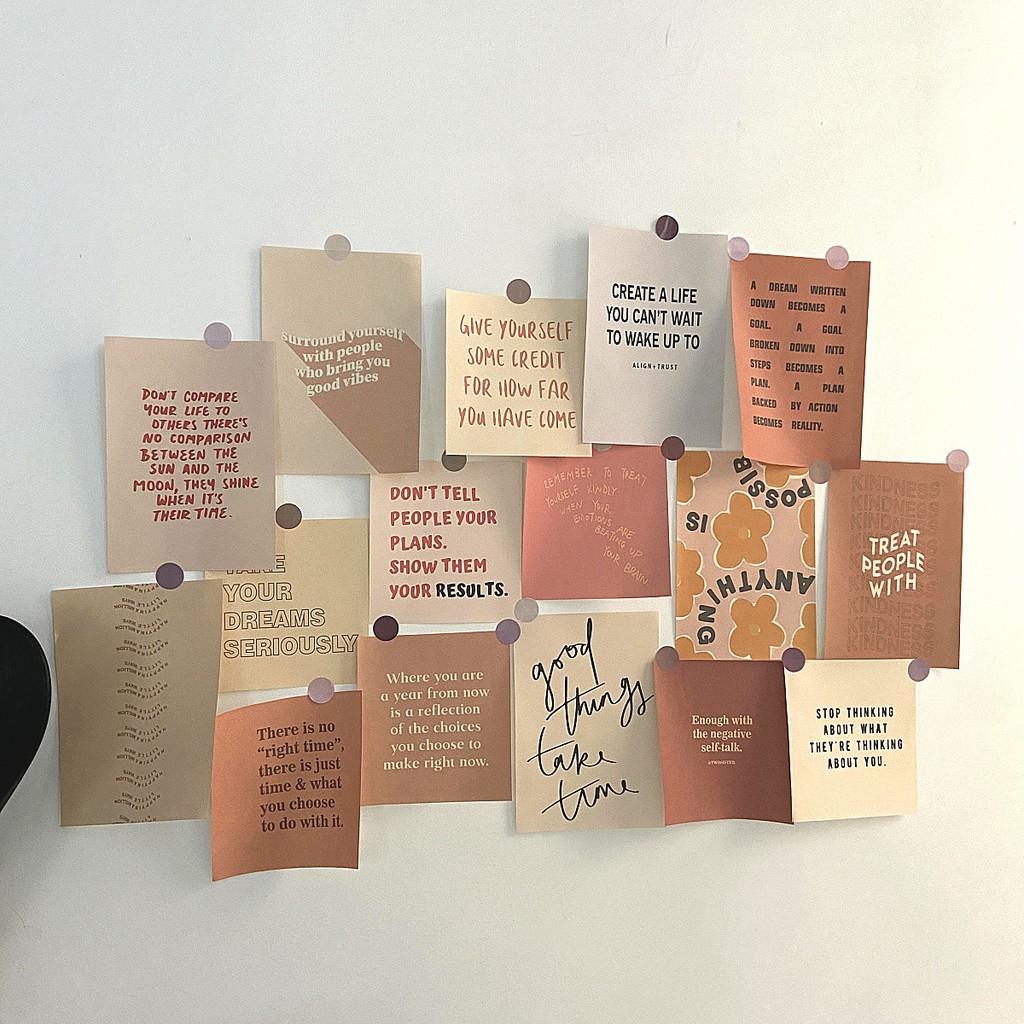 DON'T COMPARE
YOUR LIFE TO
OTHERS THERE'S
NO COMPARISON
BETWEEN THE
SUN AND THE
MOON, THEY SHINE
WHEN IT'S
THEIR TIME.
surround yourself
with people
who bring you
good vibes
GIVE YOURSELF
SOME CREDIT
FOR HOW FAR
YOU HAVE COME
CREATE A LIFE
YOU CAN'T WAIT
TO WAKE UP TO
ALIGN+TRUST
A DREAM WRITTEN
DOWN BECOMES A
GOAL. A GOAL
BROKEN DOWN INTO
STEPS BECOMES A
PLAN. A PLAN
BACKED BY ACTION
BECOMES REALITY.
TAKE
YOUR
DREAMS
SERIOUSLY
DON'T TELL
PEOPLE YOUR
PLANS.
SHOW THEM
YOUR RESULTS.
REMEMBER TO TREAT
YOURSELF KINDLY
WHEN YOUR
EMOTIONS ARE
BEATING UP
YOUR BRAIN.
ANYTHING
IS
POSSIB
KINDNESS
KINDNESS
KINDNESS
TREAT
PEOPLE
WITH
KINDNESS
KINDNESS
KINDNESS
There is no
"right time",
there is just
time & what
you choose
to do with it.
Where you are
a year from now
is a reflection
of the choices
you choose to
make right now.
good
things
take
time
Enough with
the negative
self-talk.
STOP THINKING
ABOUT WHAT
THEY'RE THINKING
ABOUT YOU.